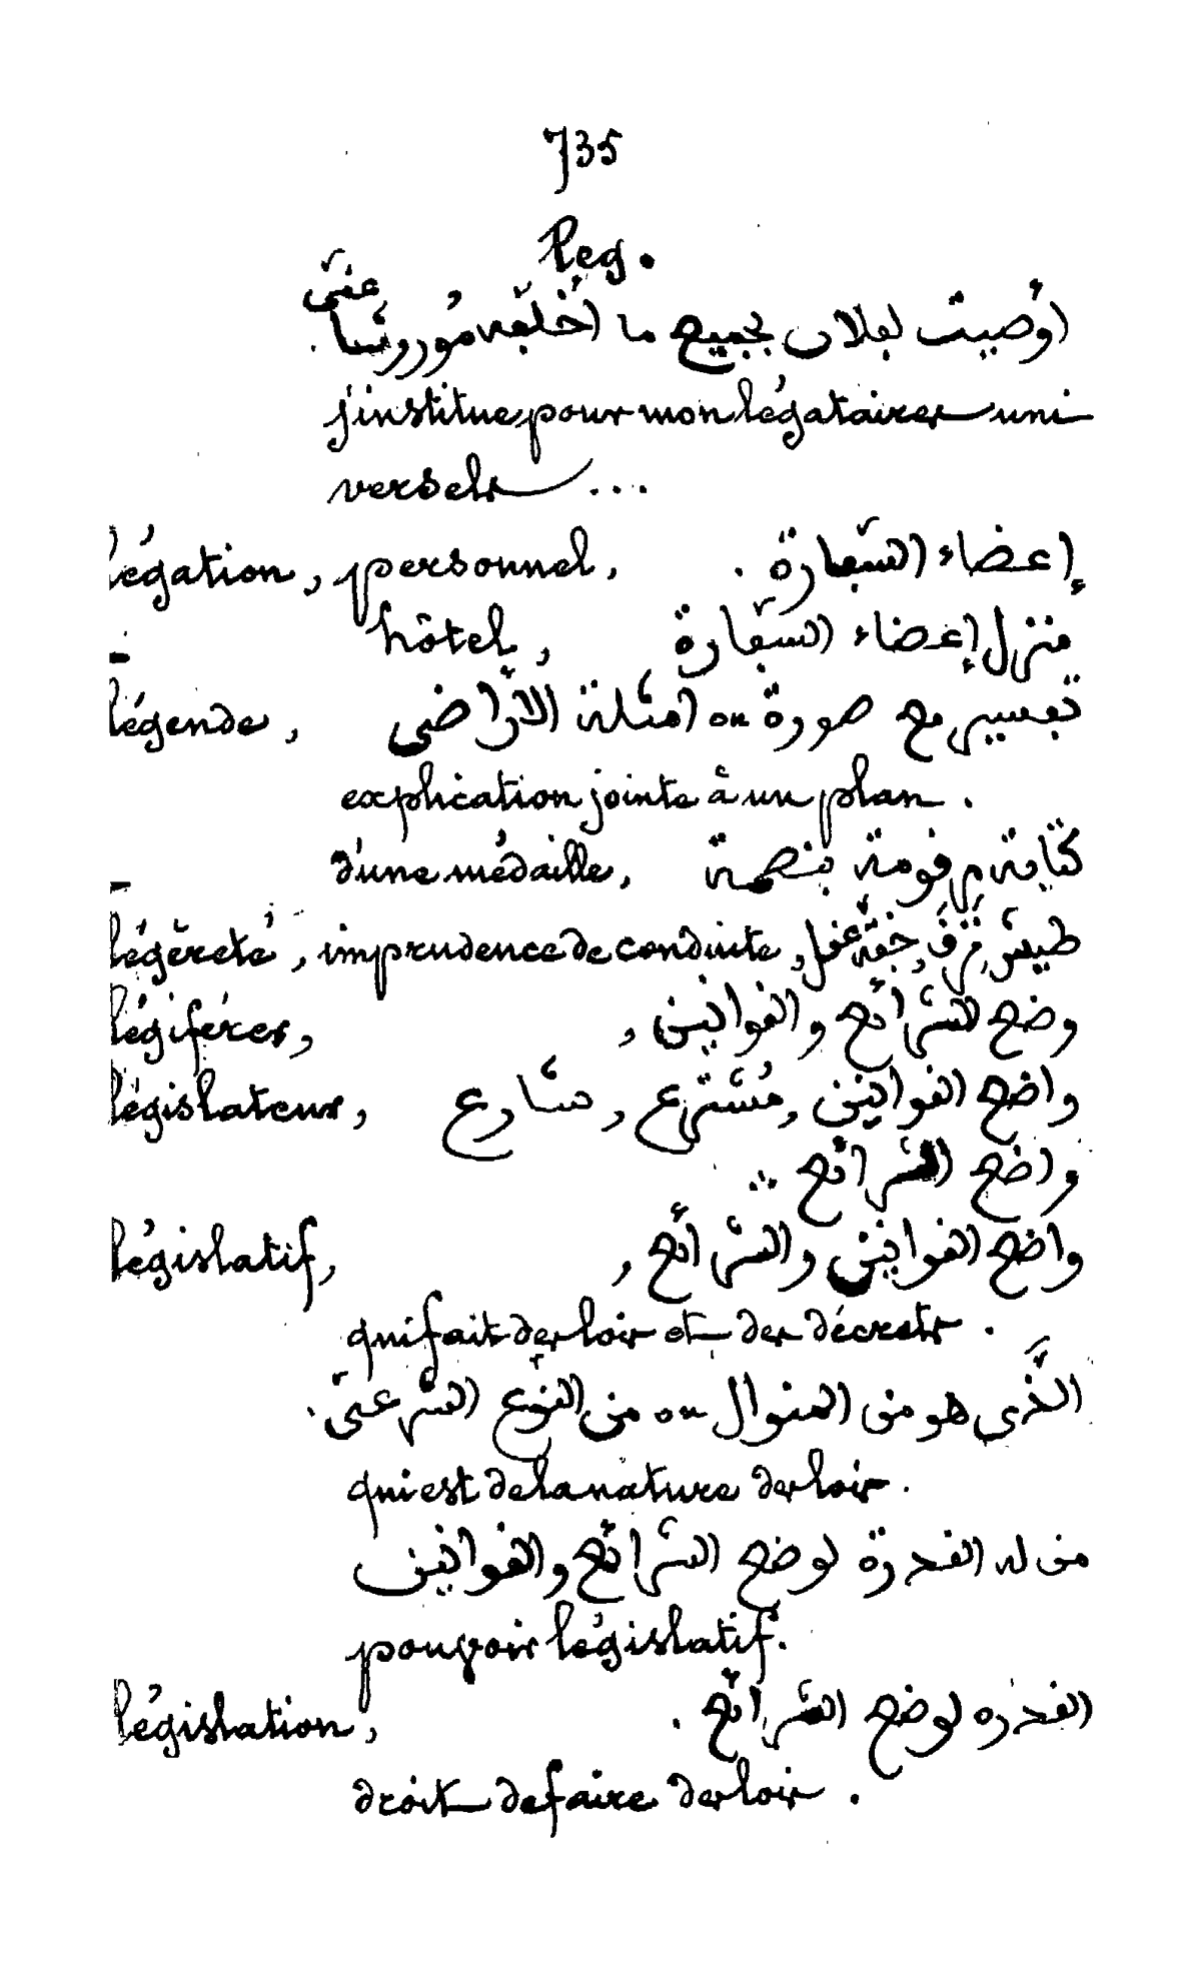 735
Leg.
أوصيت لفلان بجميع ما أخلفه موروثا عنّى .
j'institue pour mon légataire uni
versel ...
légation, personnel, إعضاء السّفارة .
— hôtel, منزل إعضاء السّفارة
légende, تفسير مع صورة ou امثلة الأراضى
explication jointe à un plan .
— d'une médaille, كتابة مرقومة بنصمة
légèreté, imprudence de conduite, طيش, نزق, خفّة عقل
légiférer, وضع الشرائع والقوانين ,
législateur, واضع القوانين , مُشترع , شارع
واضع الشرائع
législatif, واضع القوانين والشرائع ,
qui fait des lois et des décrets .
الّذى هو من المنوال ou من النّوع الشرعىّ .
qui est de la nature des lois .
من له القدرة لوضع الشرائع والقوانين
pouvoir législatif .
législation, القدره لوضع الشرائع .
droit de faire des lois .